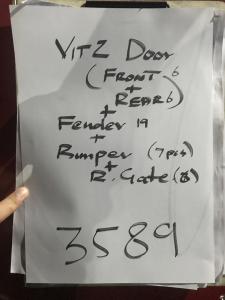 VITZ Door
(FRONT 6
+
REAR 6)
+
Fender 19
+
Bumper (7pis)
+
R. Gate (8)
3589